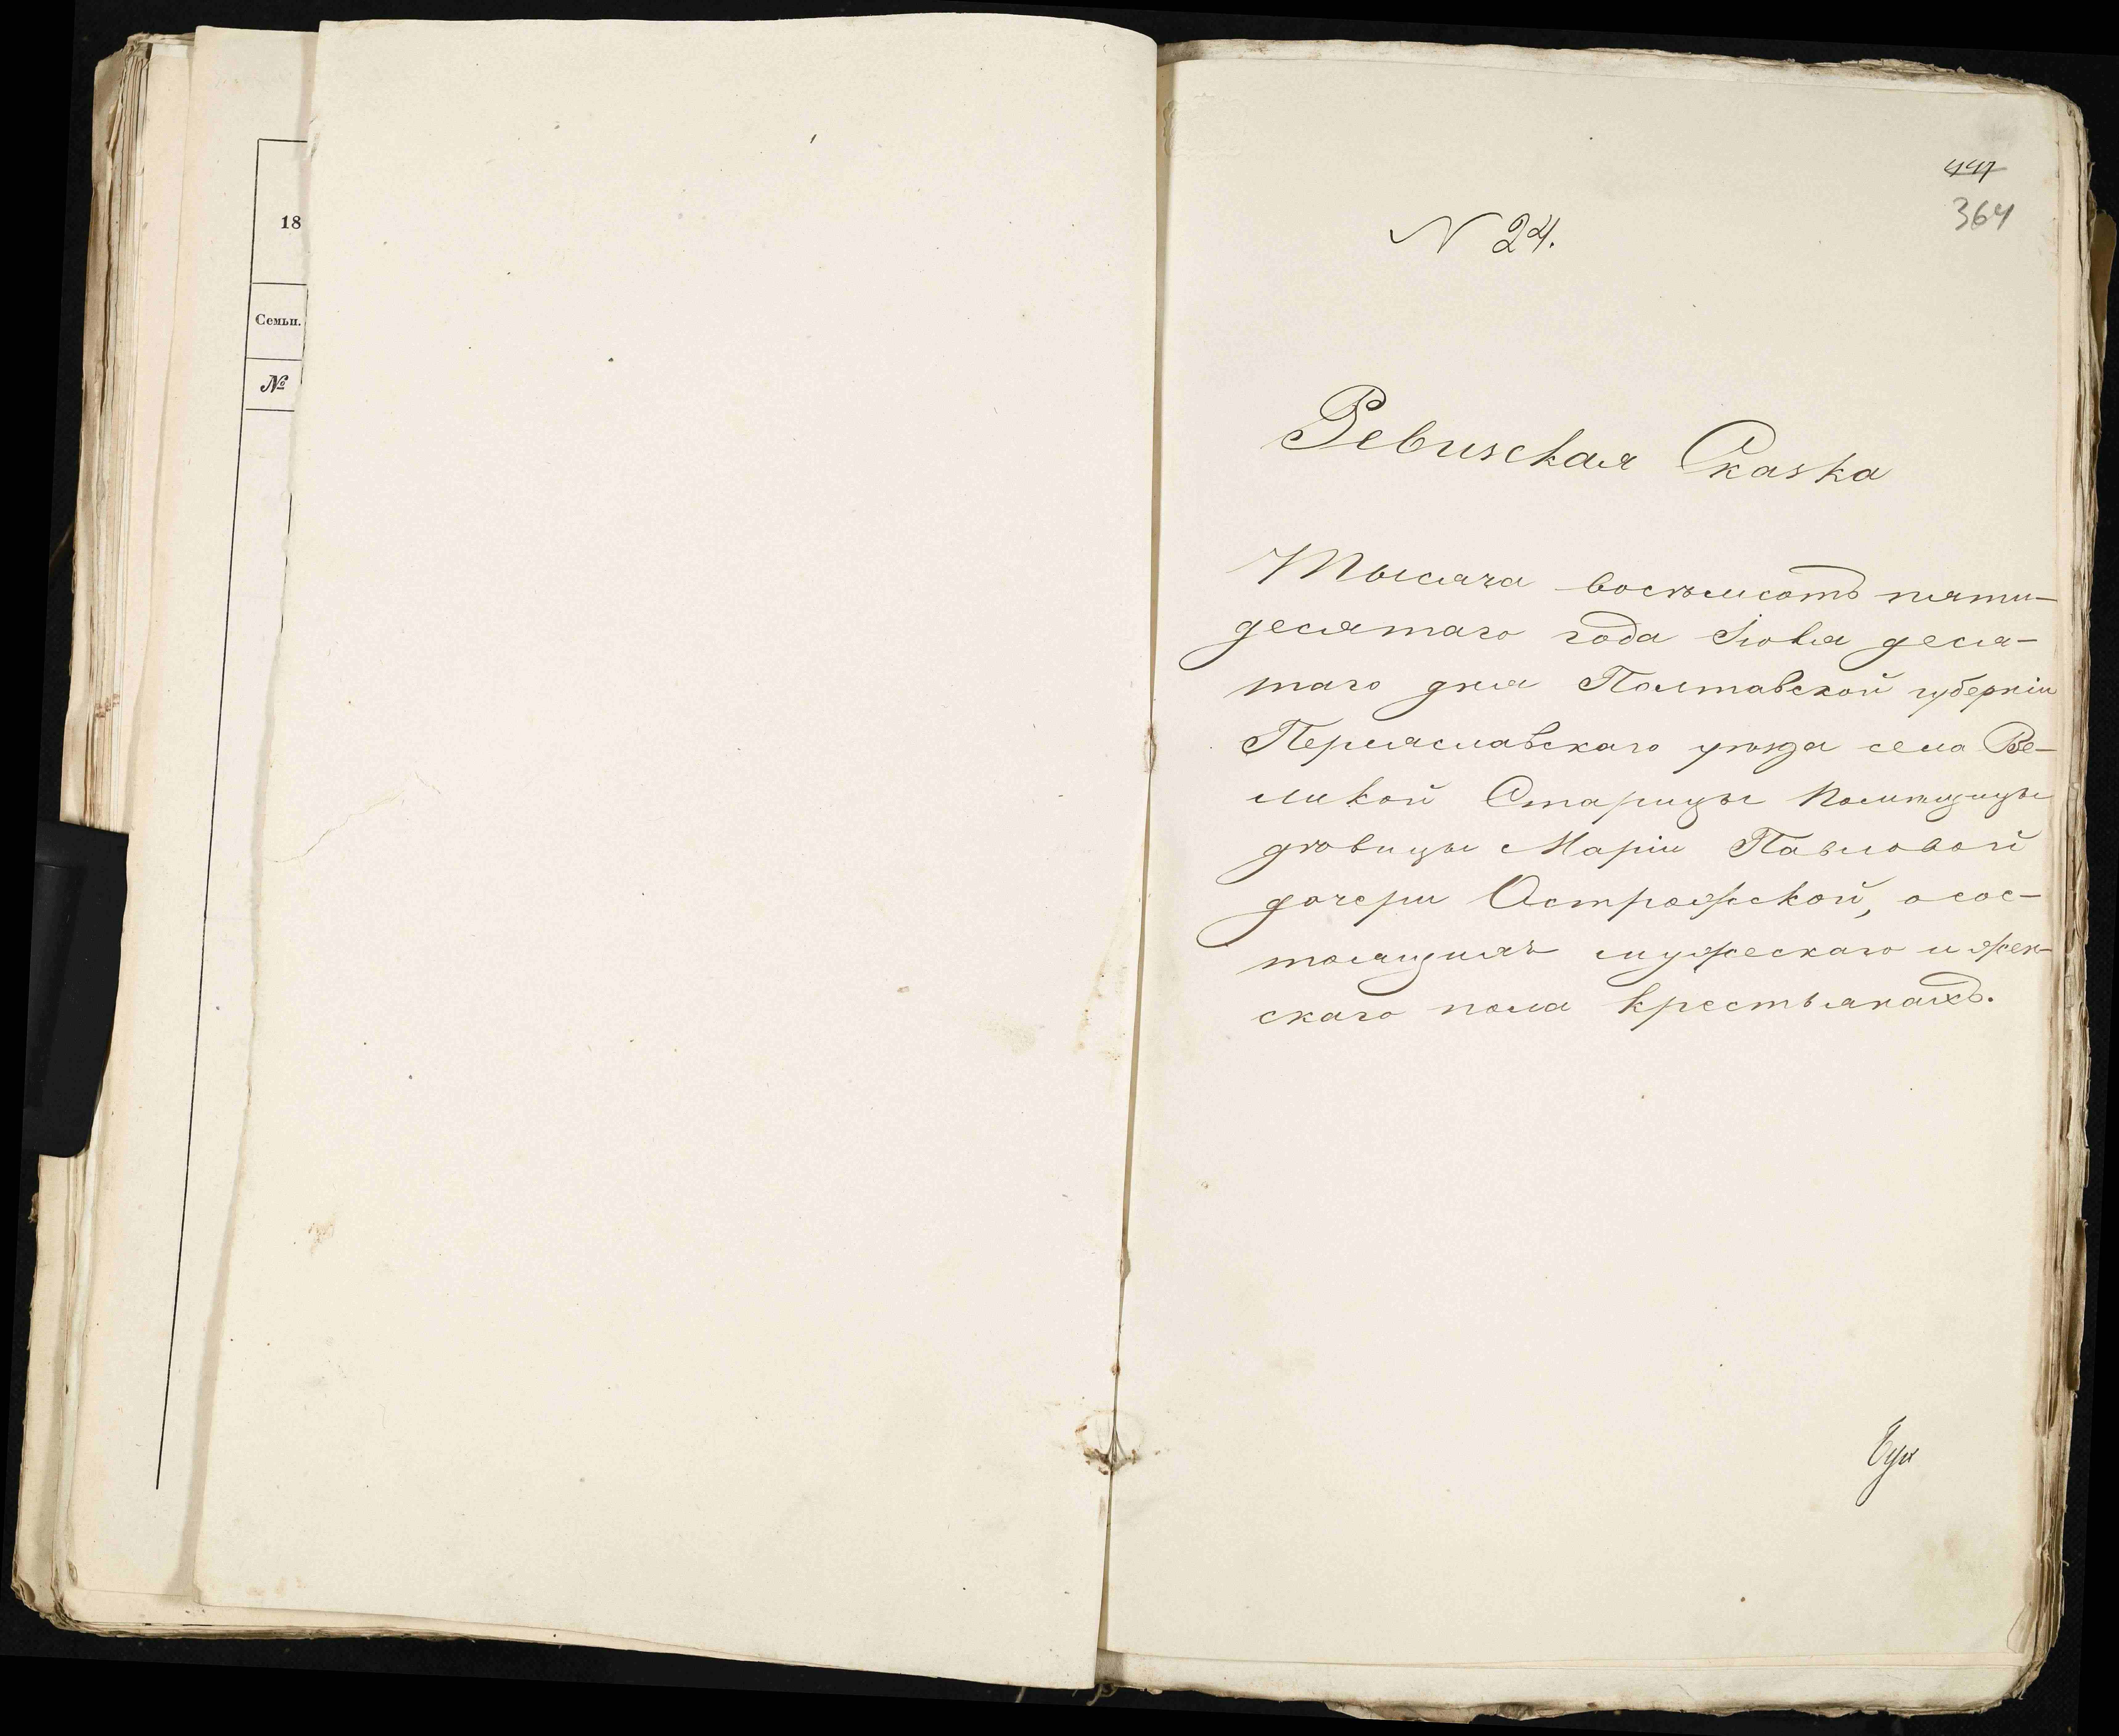 18
Семьи.
№
447
364
N 24.
Ревизская Сказка
Тысяча восемьсотъ пяти-
десятаго года Іюля деся-
таго дня Полтавской губерніи
Переяславскаго уѣзда села Ве-
ликой Старицы Помѣщицы
дѣвицы Маріи Павловой
дочери Острожской, о сос-
тоящихъ мужескаго и жен-
скаго пола крестьянахъ.